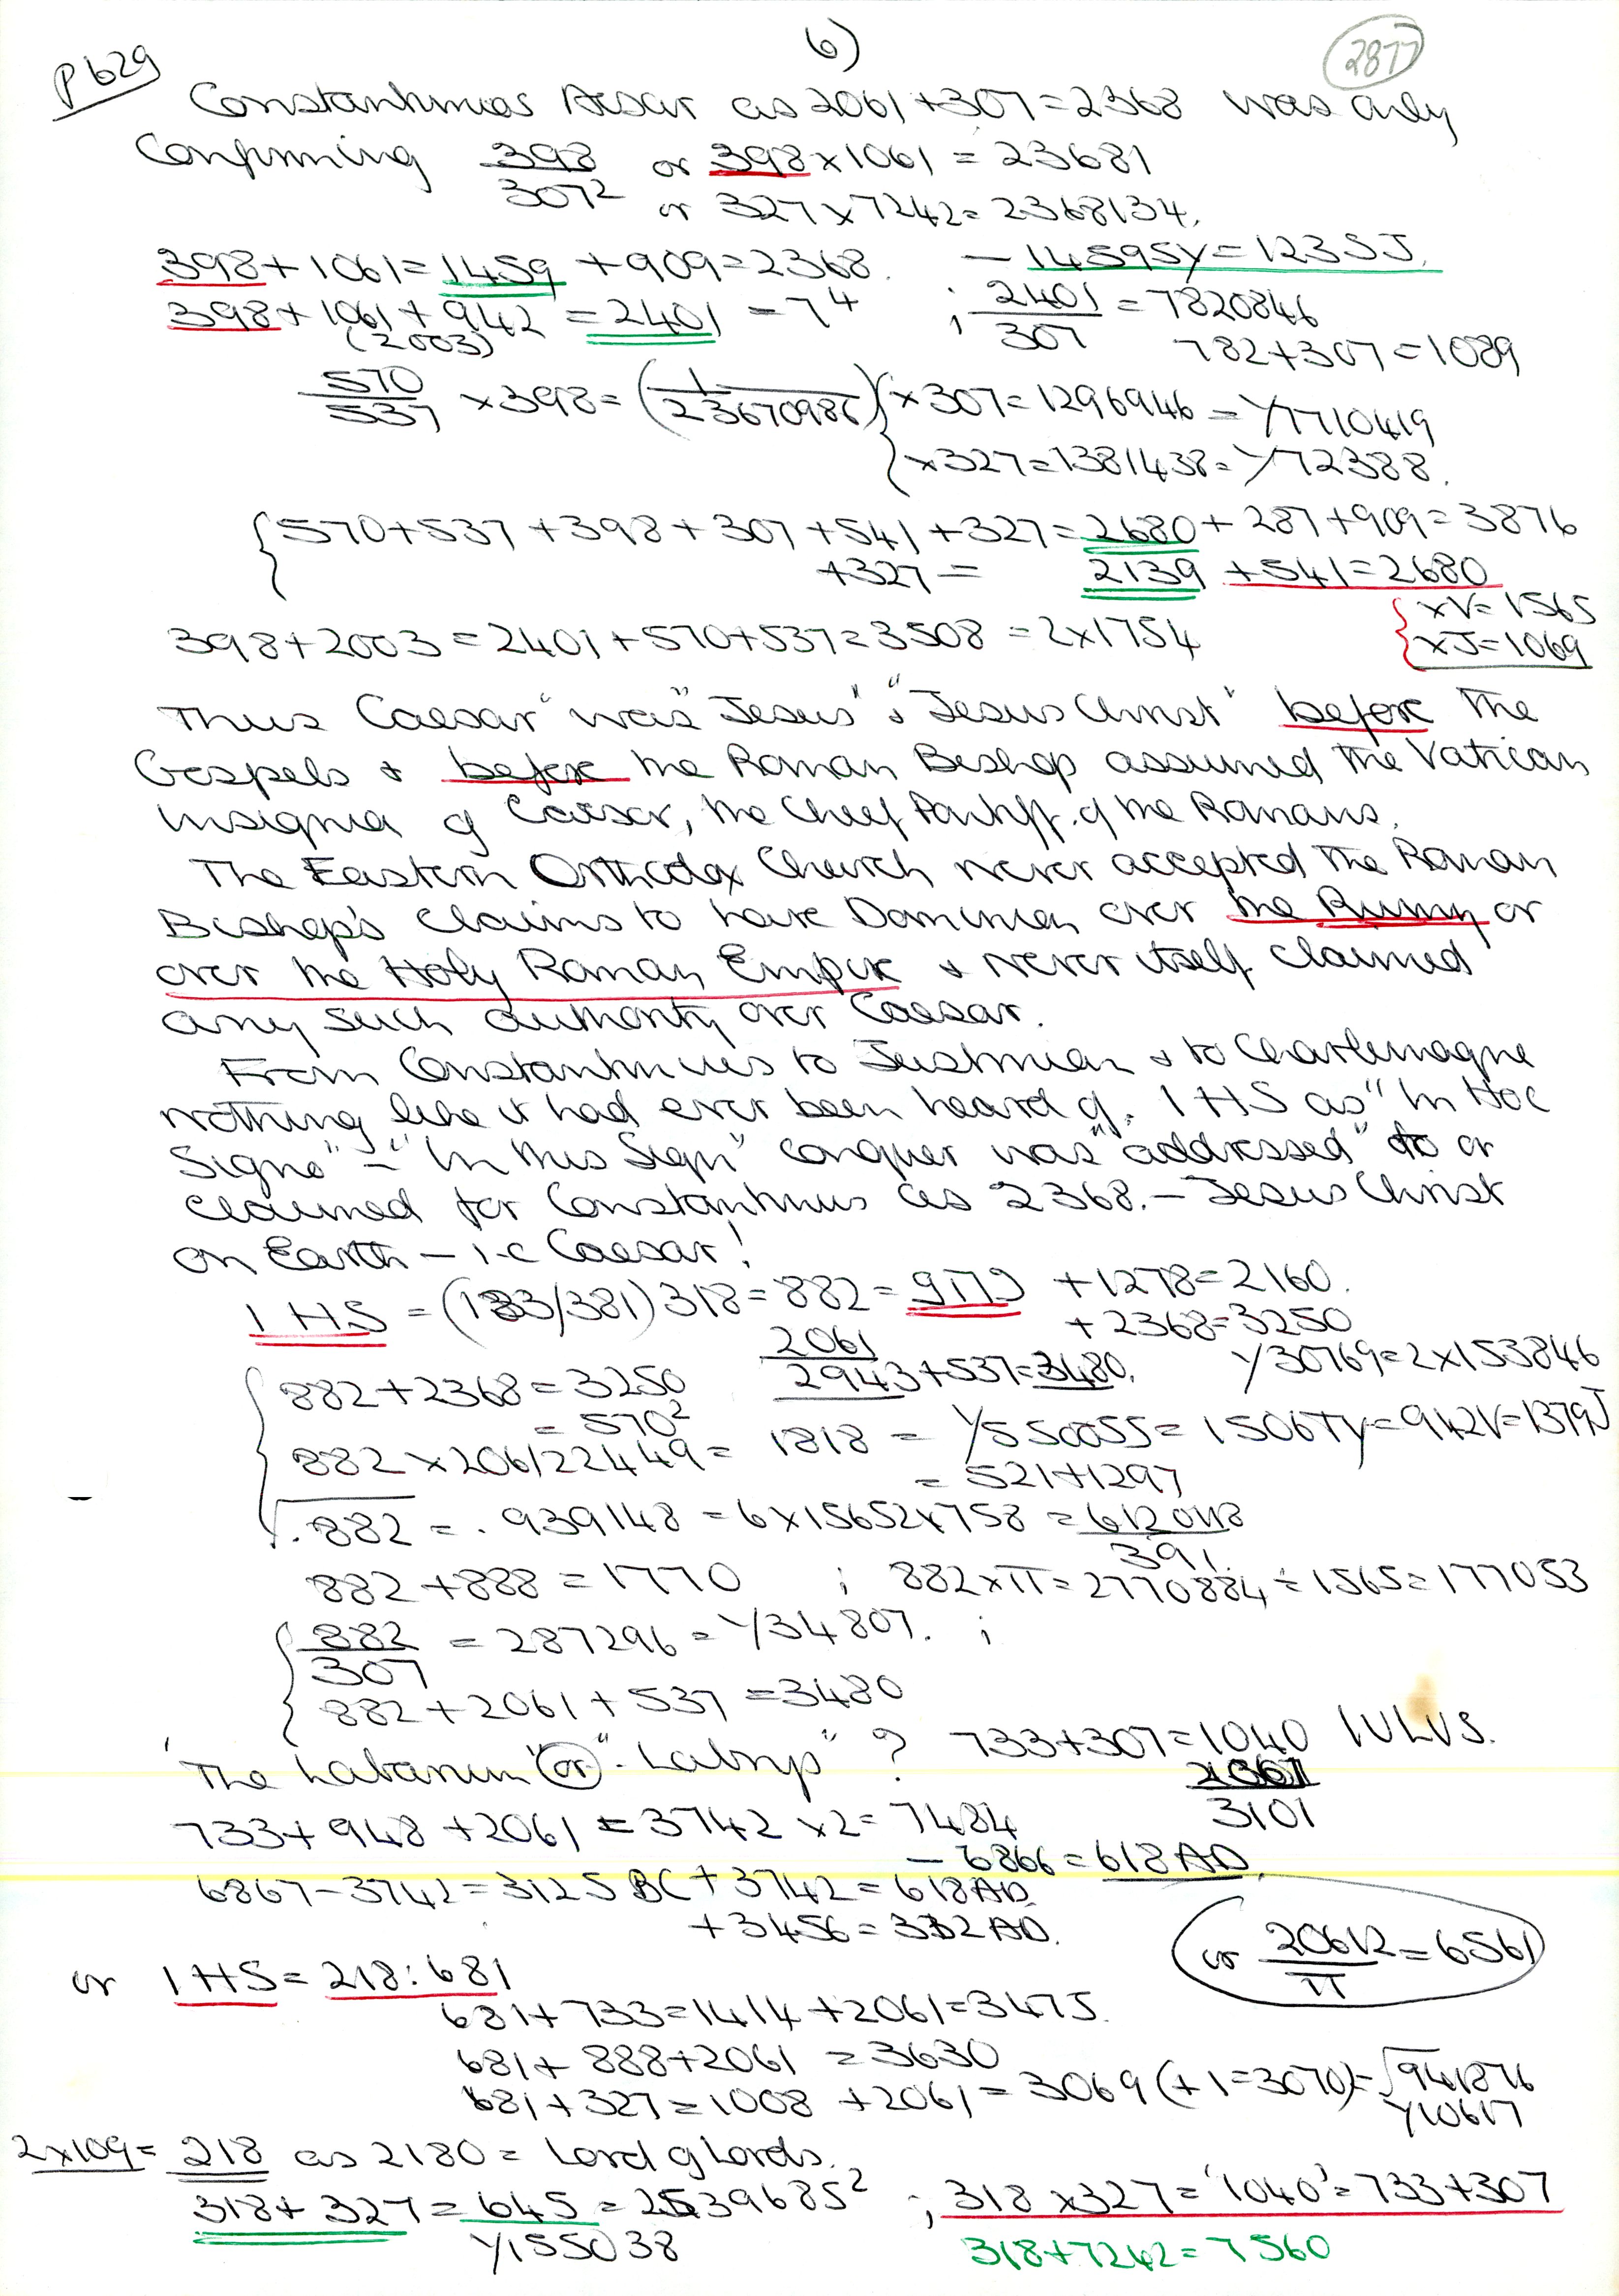 6)
2877
P629
Constantinus Aesar as 2061+307=2368 was only
Confirming 398/307² or 398×1061=23681
or 327×7242=2368134.
398+1061=1459+909=2368. – 14595Y=1235J.
398+1061+942=2401=7⁴ ; 2401/307=7820846
(2003) 782+307=1089
570/537 ×398=(1/23670986){×307=1296946=Y7710419
{×327=1381438=Y72388.
{570+537+398+307+541+327=2680+287+909=3876
+327= 2139+541=2680
{×V=1565
398+2003=2401+570+537=3508=2×1754 {×J=1069
Thus Caesar "was" Jesus" & "Jesus Christ" before the
Gospels & before the Roman Bishop assumed the Vatican
Insignia of Caesar, the Chief Pontiff. of the Romans.
The Eastern Orthodox Church never accepted the Roman
Bishop's claims to have Dominion over the or
over the Holy Roman Empire & never itself claimed
any such authority over Caesar.
From Constantinues to Justinian & to Charlemagne
nothing like it had ever been heard of. IHS as "In Hoc
Signo" – "In this Sign" conquer was "addressed" to or
claimed for Constantinus as 2368. – Jesus Christ
on Earth – i.e Caesar!
IHS = (183/381)318=882= +1278=2160.
+2368=3250
{882+2368=3250 2061/2943+537=3480. Y30769=2×153846
=570²
882×206122449=1818=Y550055=1506TY=942V=1379J
=521+1297
√.882=.939148=6×15652×758=612048/391.
882+888=1770 ; 882×π=2770884÷1565=177053
{882/307=287296=Y34807. ;
882+2061+537=3480
'The Labarum "or" "Labrys" ? 733+307=1040 IULUS.
2061
3101
733+948+2061=3742×2=7484
–6866=618AD.
6867–3742=3125BC+3742=618AD
+3456=332AD.
(or 20612/π=6561)
or IHS=218:681
681+733=1414+2061=3475.
681+888+2061=3630
681+327=1008+2061=3069(+1=3070)=√941876
Y10617
2×109=218 as 2180=Lord of Lords.
318+327=645=2539685² ; 318×327='1040'=733+307
Y155038 318+7242=7560